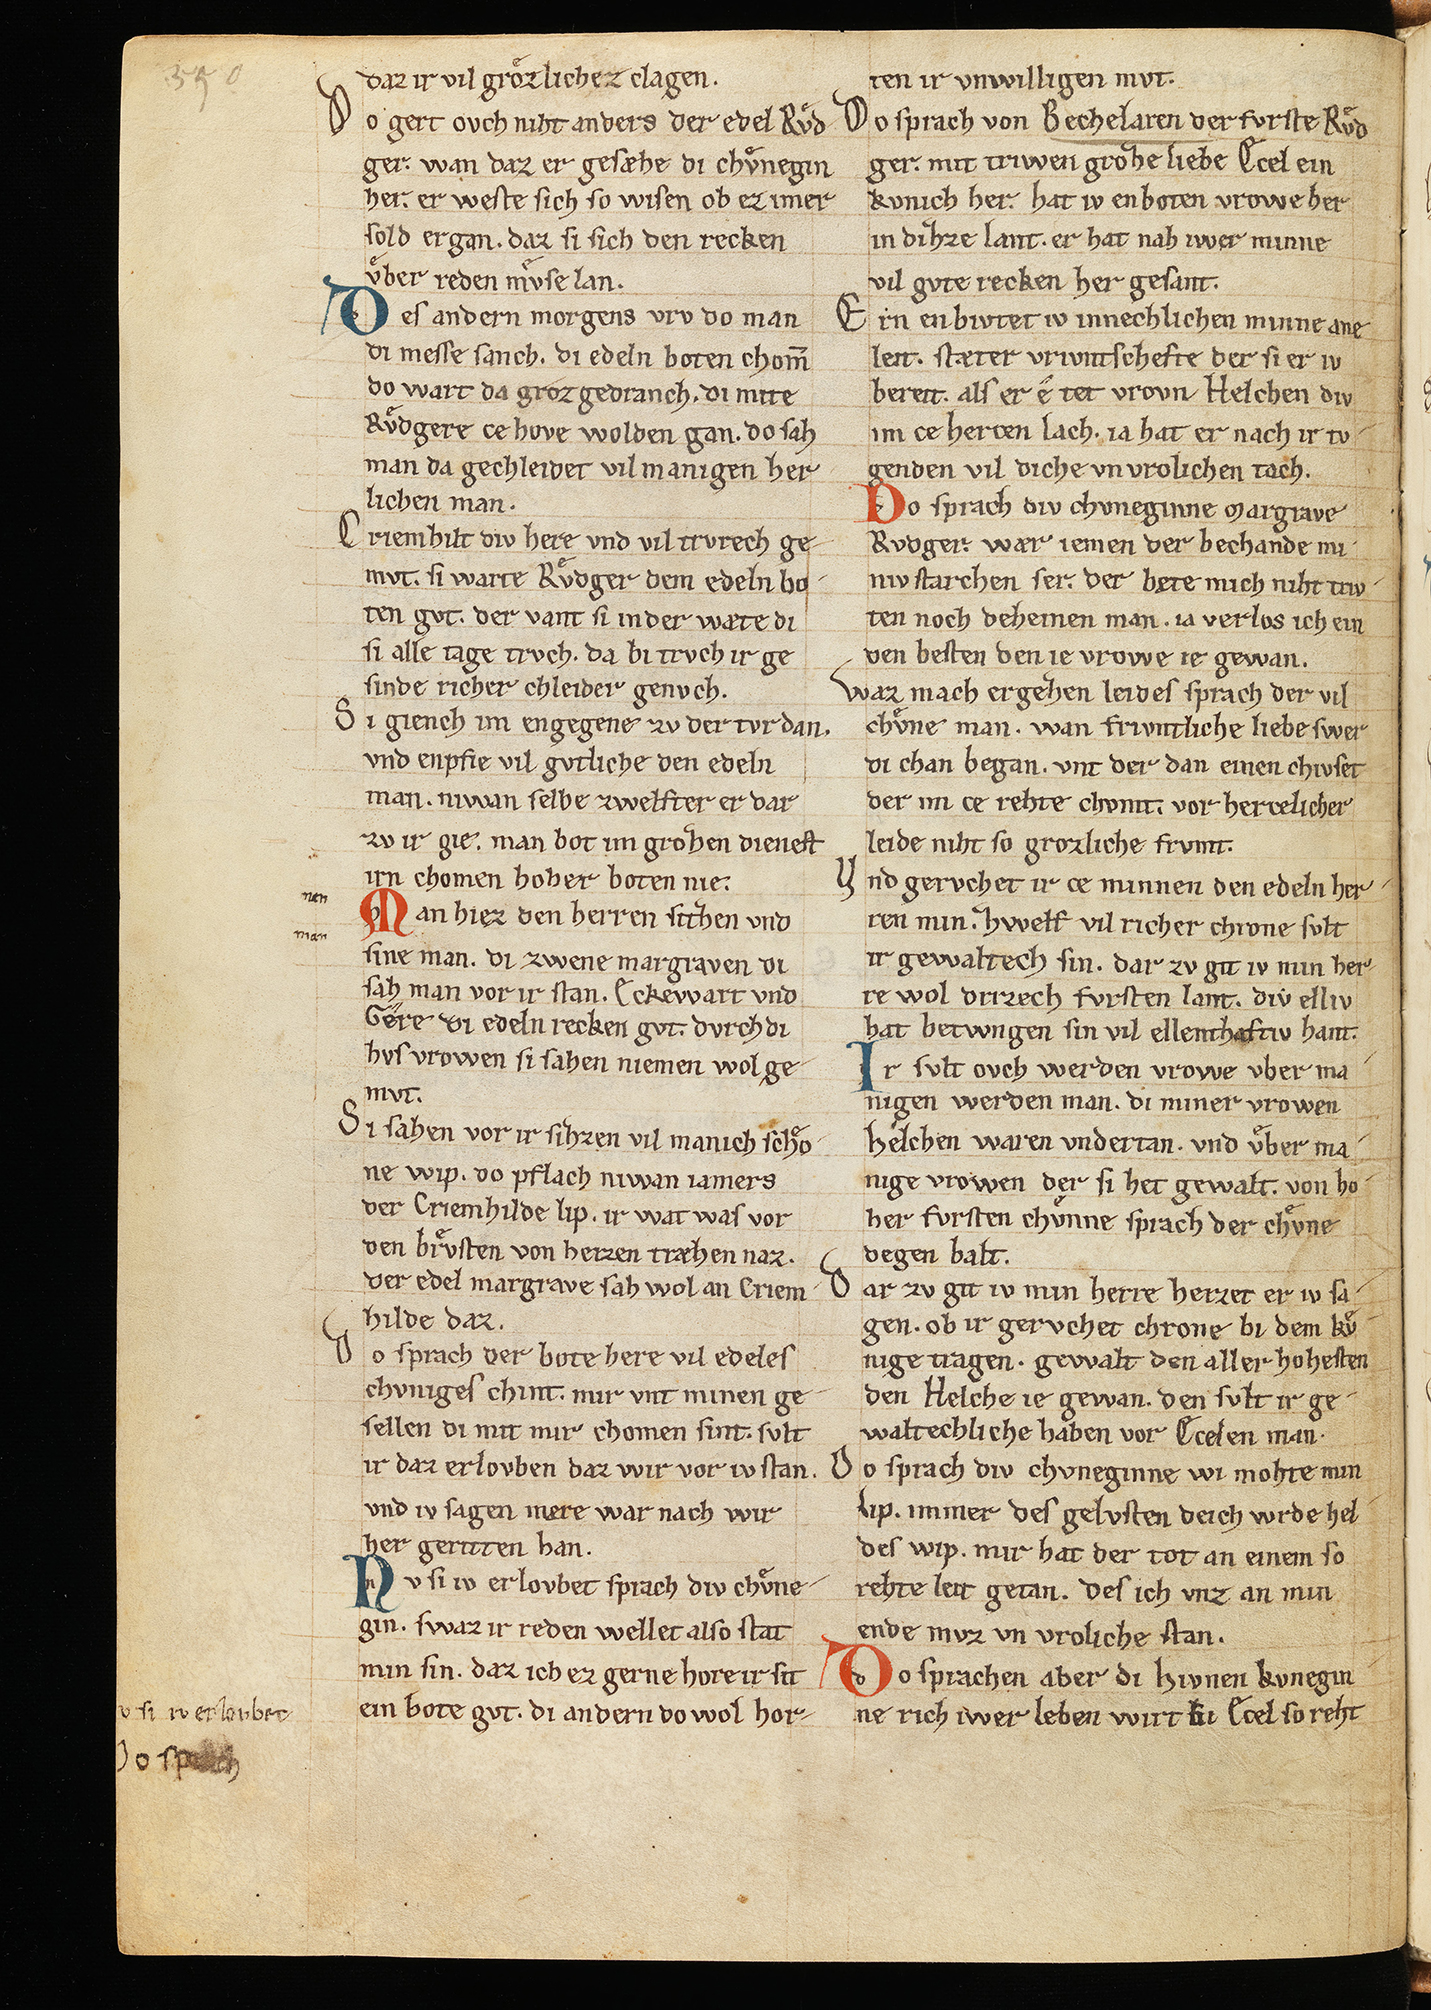 daz ir vil grozlichez clagen.
Do gert ovch niht anders der edel Rvͦd
ger. wan daz er gesæhe di chvͤnegin
her. er weste sich so wisen ob ez imer
sold ergan. daz si sich den recken
vͤber reden mvͤse lan.
Des andern morgens vrv do man
di messe sanch. di edeln boten chom̄
do wart da groz gedranch. di mite
Rvͤdgere ce hove wolden gan. do sah
man da gechleidet vil manigen her
lichen man.
Criemhilt div here vnd vil trvrech ge
mvt. si warte Rvͤdger dem edeln bo
ten gvt. der vant si in der wæte di
si alle tage trvch. da bi trvch ir ge
sinde richer chleider genvch.
Si giench im engegene zv der tvr dan.
vnd enpfie vil gvtliche den edeln
man. niwan selbe zwelfter er dar
zv ir gie. man bot im grozen dienest
irn chomen hoher boten nie.
Man hiez den herren sitzen vnd
sine man. di zwene margraven di
sah man vor ir stan. Eckewart vnd
Gere di edeln recken gvt. dvrch di
hvs vrowen si sahen niemen wol ge
mvt.
Si sahen vor ir sitzen vil manich schoͤ
ne wip. do pflach niwan iamers
der Criemhilde lip. ir wat was vor
den brvͤsten von herzen træhen naz.
der edel margrave sah wol an Criem
hilde daz.
Do sprach der bote here vil edeles
chvniges chint. mir vnt minen ge
sellen di mit mir chomen sint. svlt
ir daz erlovben daz wir vor iv stan.
vnd iv sagen mere war nach wir
her geritten han.
Nv si iv erlovbet sprach div chvͤne
gin. swaz ir reden wellet also stat
min sin. daz ich ez gerne hore ir sit
ein bote gvt. di andern do wol hor
ten ir vnwilligen mvt.
Do sprach von Bechelaren der fvrste Rvͤd
ger. mit triwen grozze liebe Ecel ein
kvnich her. hat iv enboten vrowe her
in ditze lant. er hat nah iwer minne
vil gvte recken her gesant.
Ern enbivtet iv innechlichen minne ane
leit. stæter vrivntschefte der si er iv
bereit. als er e tet vrovn Helchen div
im ce hercen lach. ia hat er nach ir tv
genden vil diche vnvrolichen tach.
Do sprach div chvneginne margrave
Rvdger. wær iemen der bechande mi
niv starchen ser. der bete mich niht triv
ten noch deheinen man. ia verlos ich ein
den besten den ie vrowe ie gewan.
Waz mach ergehen leides sprach der vil
chvͤne man. wan frivntliche liebe swer
di chan began. vnt der dan einen chivset
der im ce rehte chvmt. vor hercelicher
leide niht so grozliche frvmt.
Vnd gervchet ir ce minnen den edeln her
ren min. zwelf vil richer chrone svlt
ir gewaltech sin. dar zv git iv min her
re wol drizech fvrsten lant. div elliv
hat betwngen sin vil ellenthaftiv hant.
Ir svlt ovch werden vrowe vber ma
nigen werden man. di miner vrowen
helchen waren vndertan. vnd vͤber ma
nige vrowen der si het gewalt. von ho
her fvrsten chvͤnne sprach der chvͤne
degen balt.
Dar zv git iv min herre herzet er iv sa
gen. ob ir gervchet chrone bi dem kvͤ
nige tragen. gewalt den aller hohesten
den Helche ie gewan. den svlt ir ge
waltechliche haben vor Ecelen man.
Do sprach div chvneginne wi mohte min
lip. immer des gelvsten deich wrde hel
des wip. mir hat der tot an einem so
rehte leit getan. des ich vnz an min
ende mvz vn vroliche stan.
Do sprachen aber di Hivnen kvnegin
ne rich iwer leben wirt bi Ecel so reht
nen
man
v si iv erlovbet
Do sprach